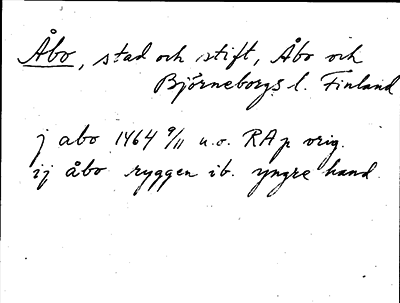 Åbo, stad och stift, Åbo och
Björneborgs l. Finland
j abo 1464 9/11 u.o. RAp orig.
ij åbo ryggen ib. yngre hand.